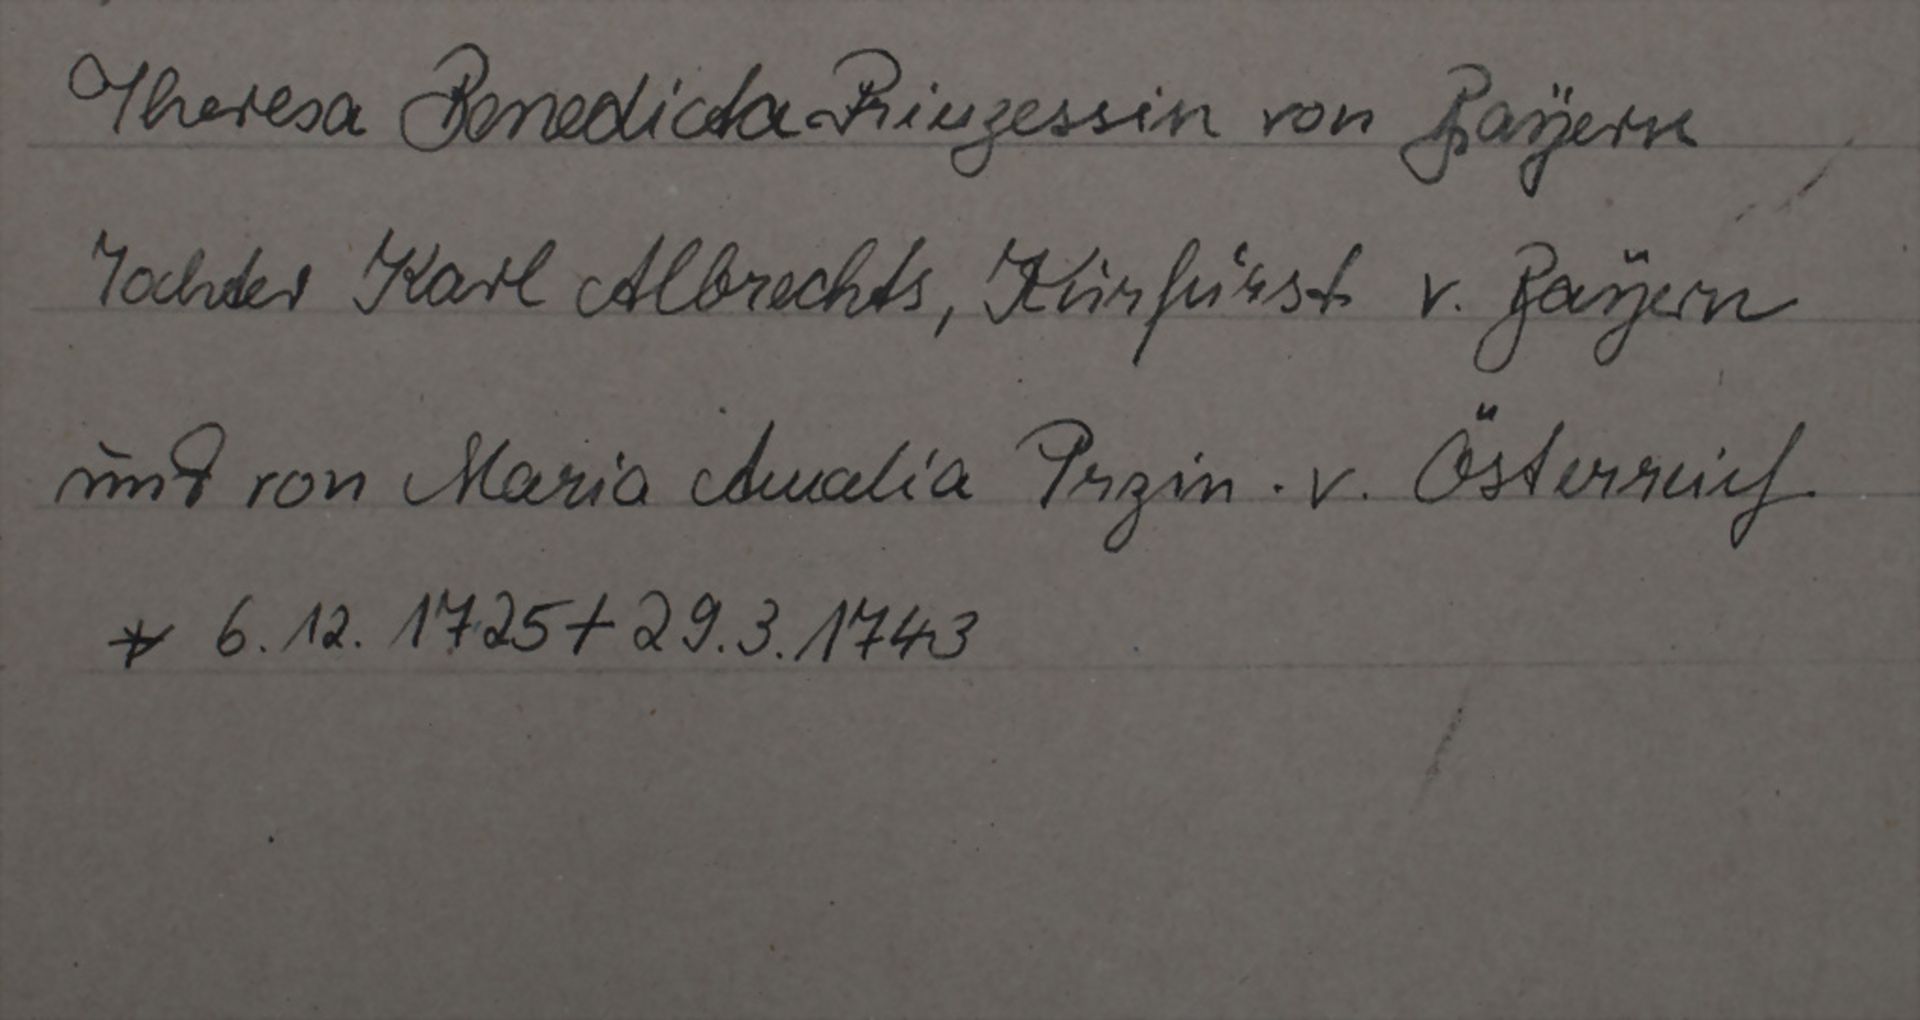 Theresa Benedicta Prinzessin von Baÿern
Tochter Karl Albrechts, Kurfürst v. Baÿern
und von Maria Amalia Przin. v. Österreich
* 6. 12. 1725 + 29. 3. 1743